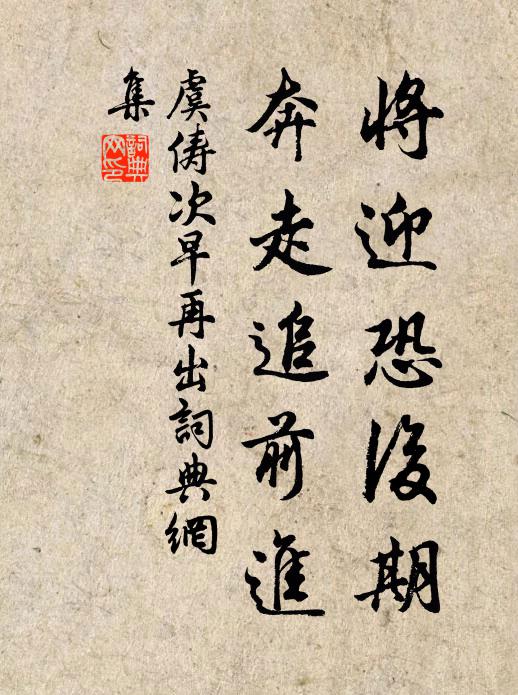 將迎恐後期
奔走追前進
虞儔次早再出詞典網
集
詞典
网印